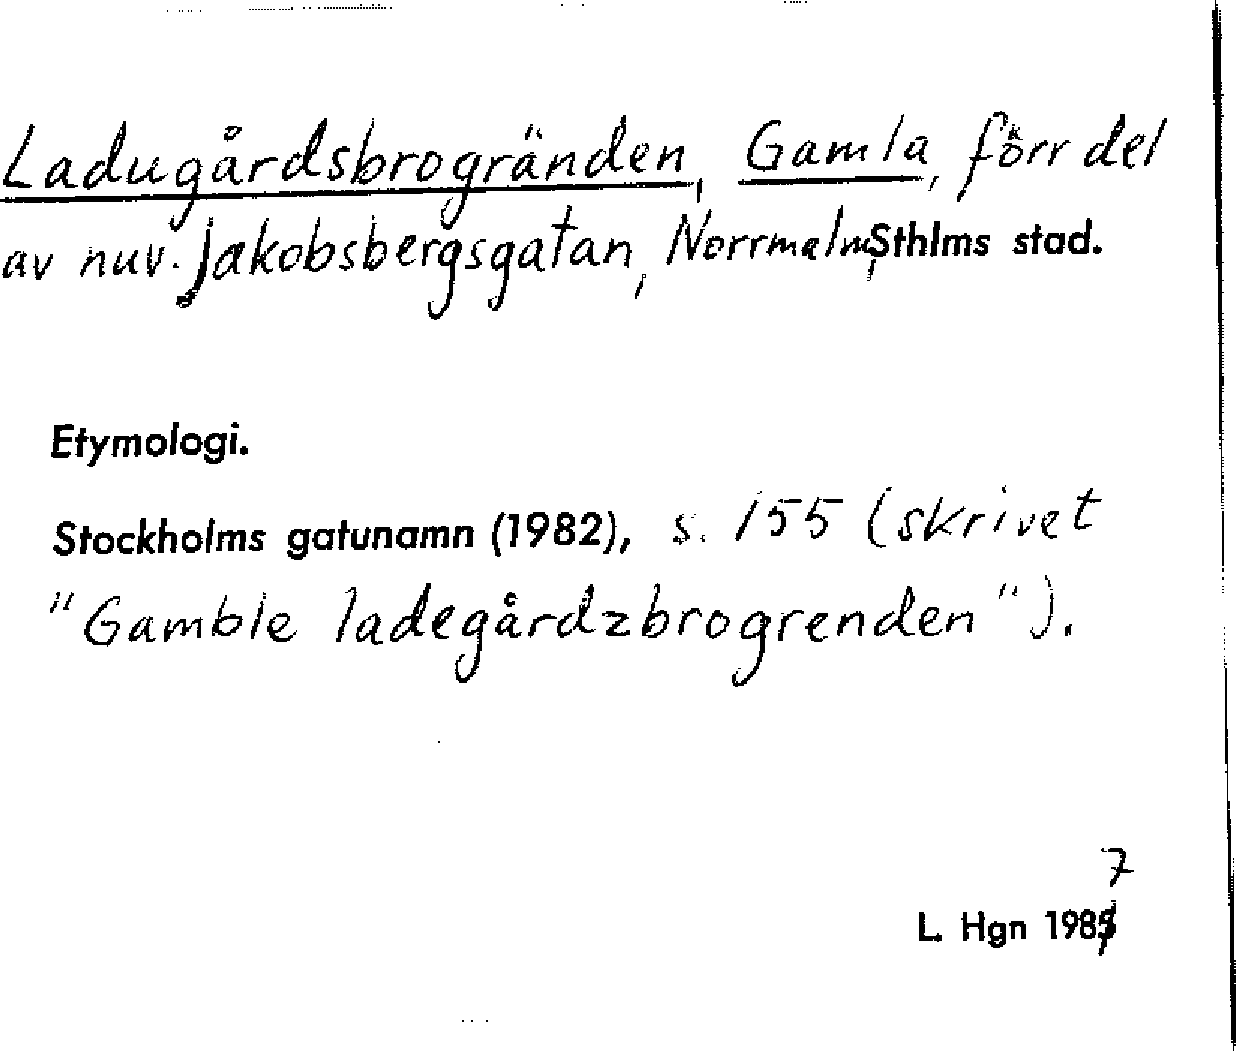 Ladugårdsbrogränden, Gamla, förr del
av nuv. Jakobsbergsgatan, Norrmalm, Sthlms stad.
Etymologi.
Stockholms gatunamn (1982), s. 155 (skrivet
"Gamble ladegårdzbrogrenden").
7
L. Hgn 1985